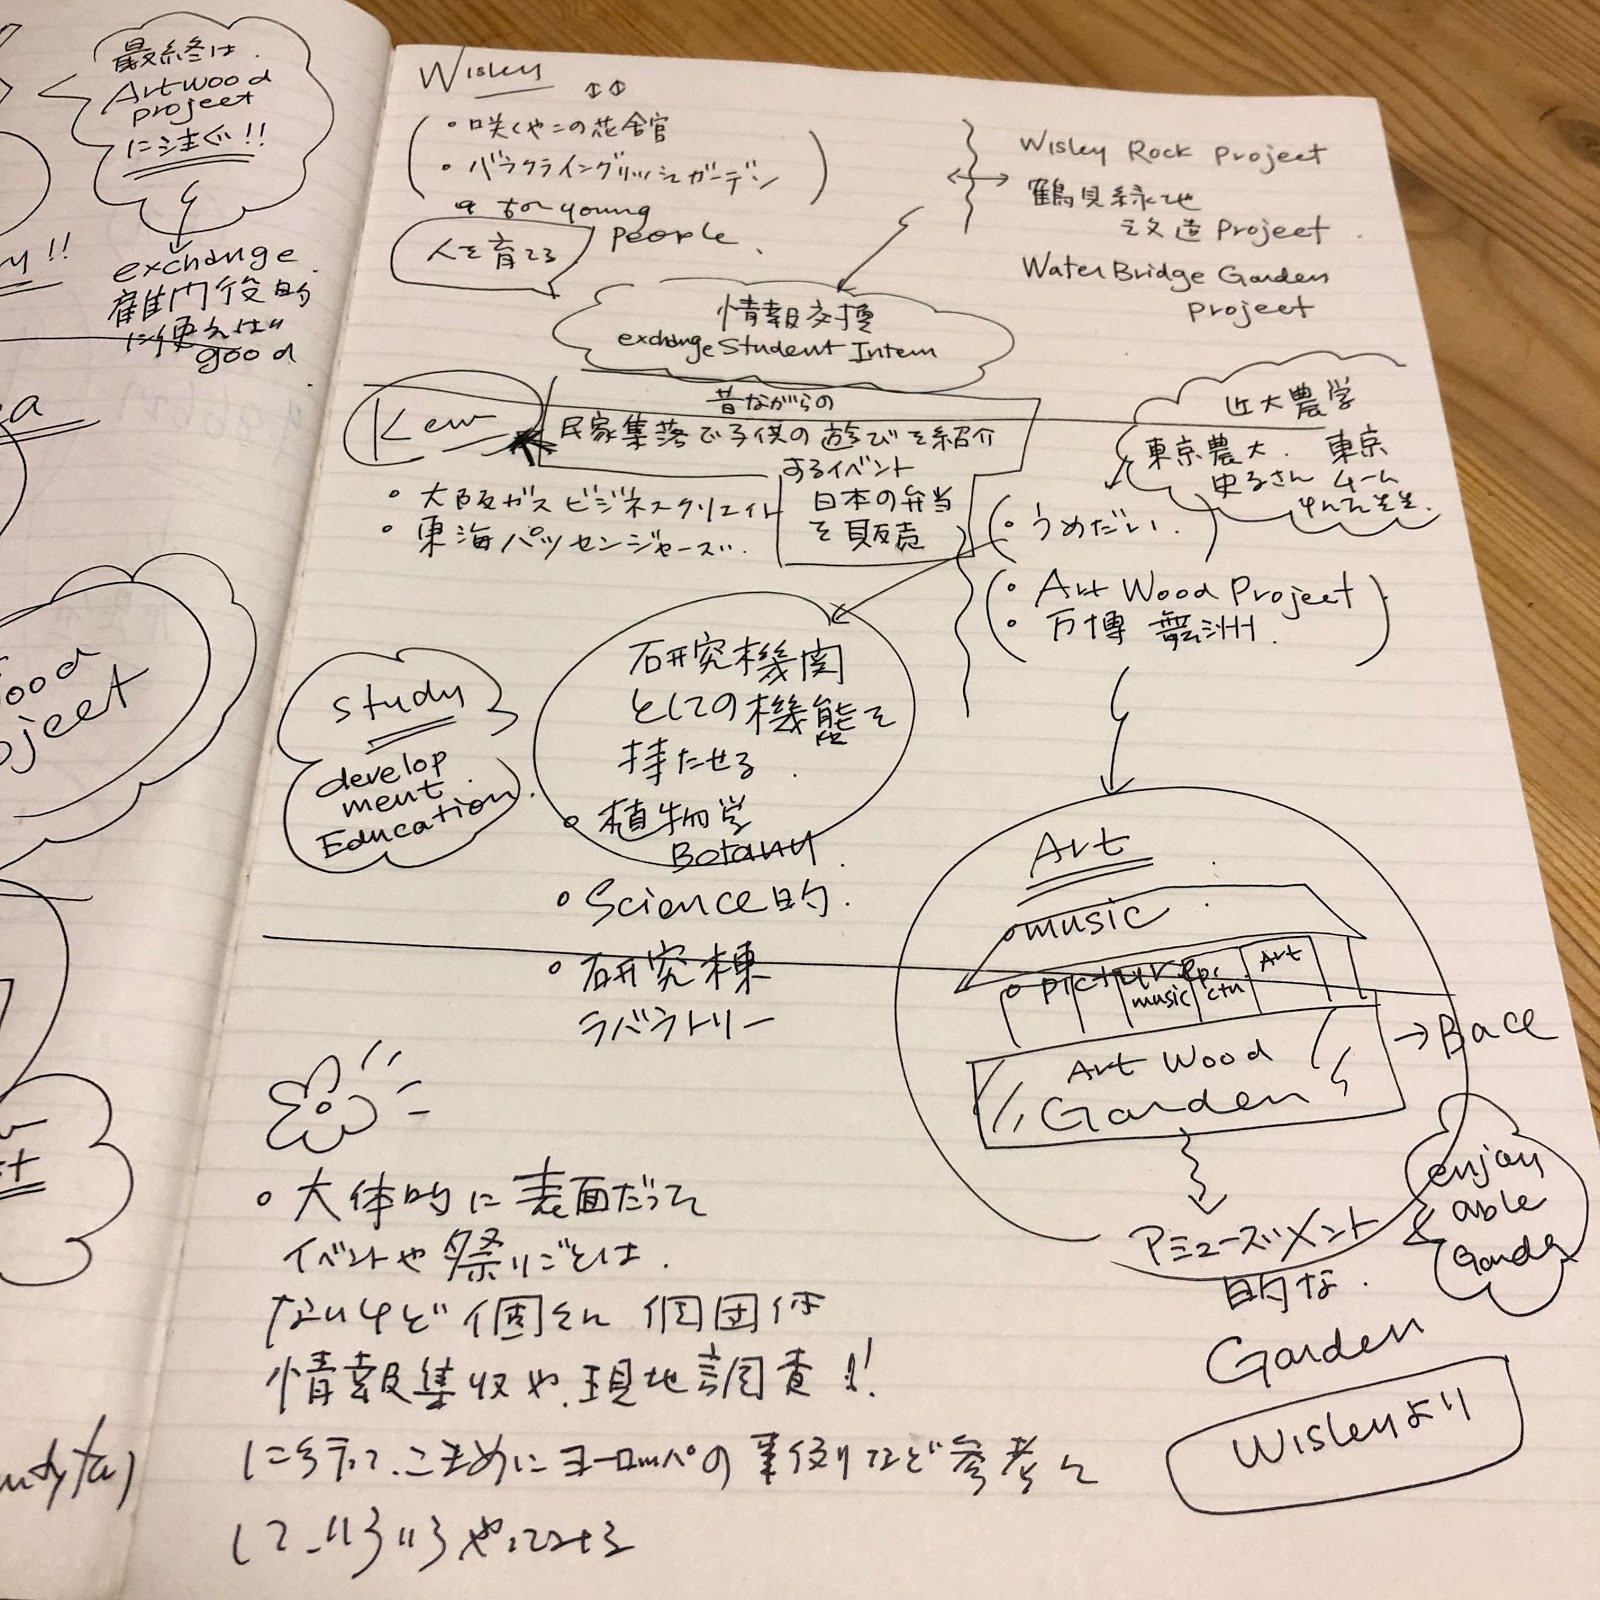 最終は
Artwood
project
に注ぐ!!
exchange
に使えば
good
ood
oject
Wisley
・咲くやこの花館
・バラクライングリッシュガーデン
for young
people.
人を育てる
Wisley Rock Project
鶴見緑地
改造 Project.
Water Bridge Garden
project
情報交換
exchange Student Intern
Kew
昔ながらの
民家集落で子供の遊びを紹介
するイベント
日本の弁当
を販売
・大阪ガスビジネスクリエイト
・東海パッセンジャーズ.
近大農学
東京農大. 東京
・うめだい.
・Art Wood Project
・万博 舞洲.
study
develop
ment.
Education.
研究機関
としての機能を
持たせる.
・植物学
Botany.
・Science的.
・研究棟
ラバラトリー
Art
・music
・picture
music
Art
Art Wood
Garden
→Bace
アミューズメント
的な.
Garden
enjoy
able
Garden
Wisleyより
・大体的に表面だって
イベントや祭りごとは.
ないけど
情報集収や.現地調査!!
に行って.こまめにヨーロッパの事例など参考に
して.いろいろやってみる